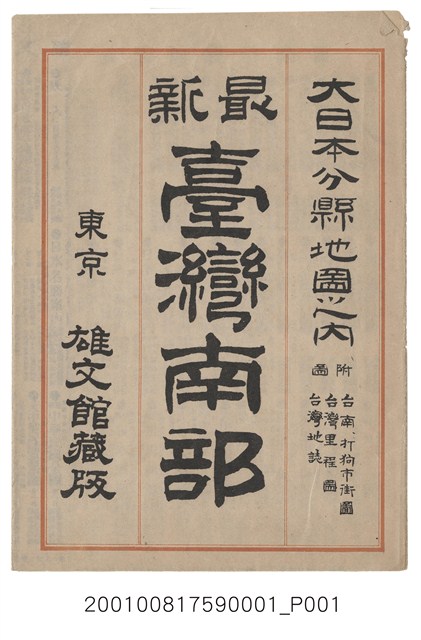 大日本分縣地圖之内
附圖
台南、打狗市街圖
台灣里程圖
台灣地誌
最新
臺灣南部
東京 雄文館藏版
200100817590001_P001